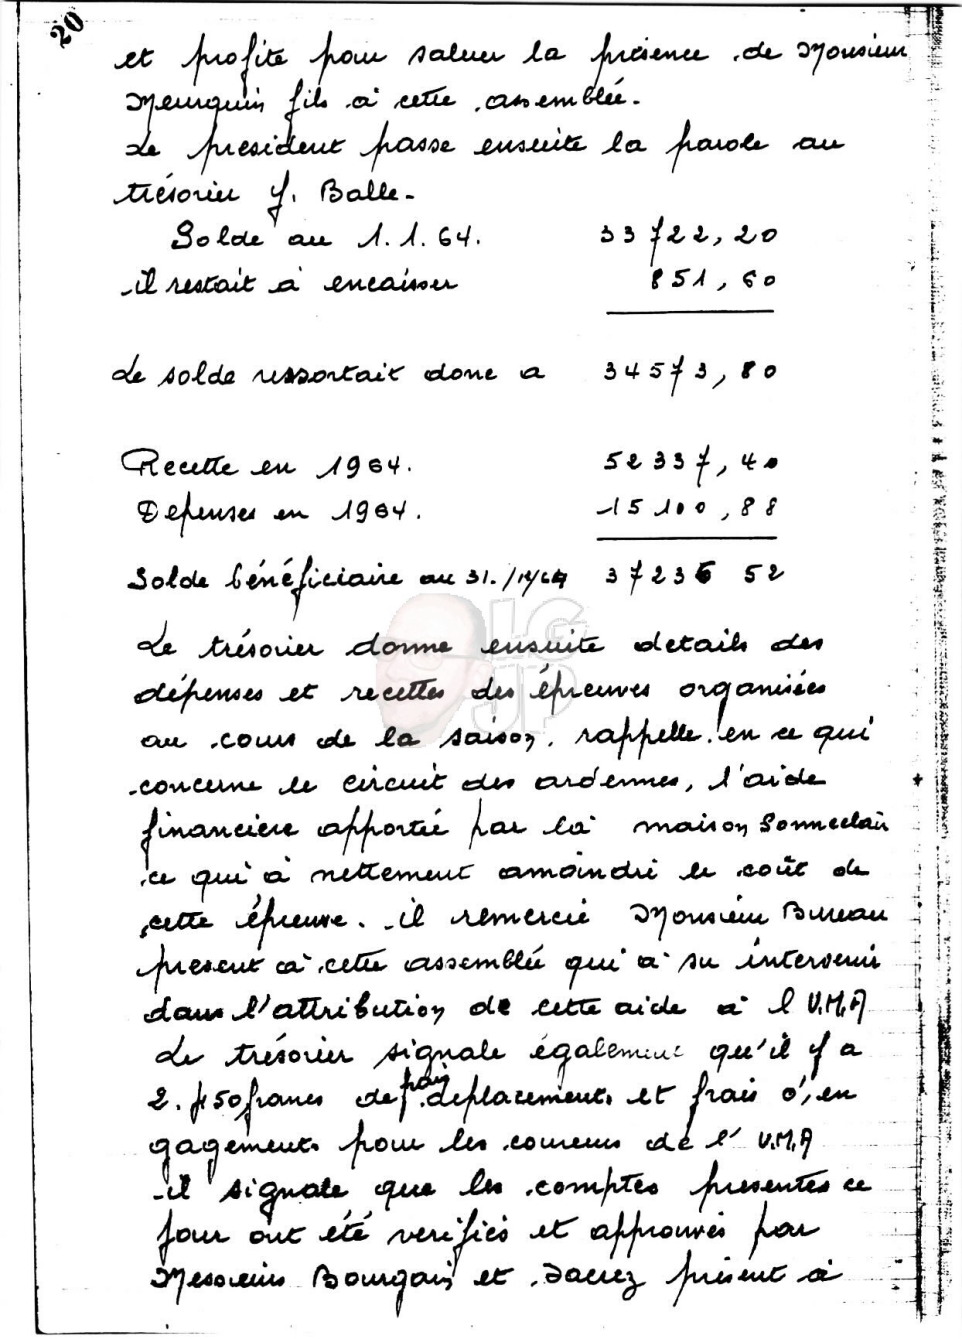 20
et profite pour saluer la présence de Monsieur
Meurquin fils à cette assemblée.
Le président passe ensuite la parole au
trésorier J. Balle.
Solde au 1.1.64. 33722,20
il restait à encaisser 851,60
Le solde ressortait donc a 34573,80
Recette en 1964. 52337,40
Dépenses en 1964. 15100,88
Solde bénéficiaire au 31./12/64 37236 52
Le trésorier donne ensuite details des
dépenses et recettes des épreuves organisées
au cours de la saison. rappelle en ce qui
concerne le circuit des ardennes, l'aide
financière apportée par la maison Sonneclair
ce qui à nettement amoindri le coût de
cette épreuve. il remercie Monsieur Bureau
present à cette assemblée qui a su intervenir
dans l'attribution de cette aide à l U.M.A
Le trésorier signale également qu'il y a
2.750 francs de frais deplacements et frais d'en
gagements pour les coureurs de l' U.M.A
il signale que les comptes presentés ce
jour ont été verifiés et approuvés par
Messieurs Bourgoin et Dacrez présent à
LG
JP